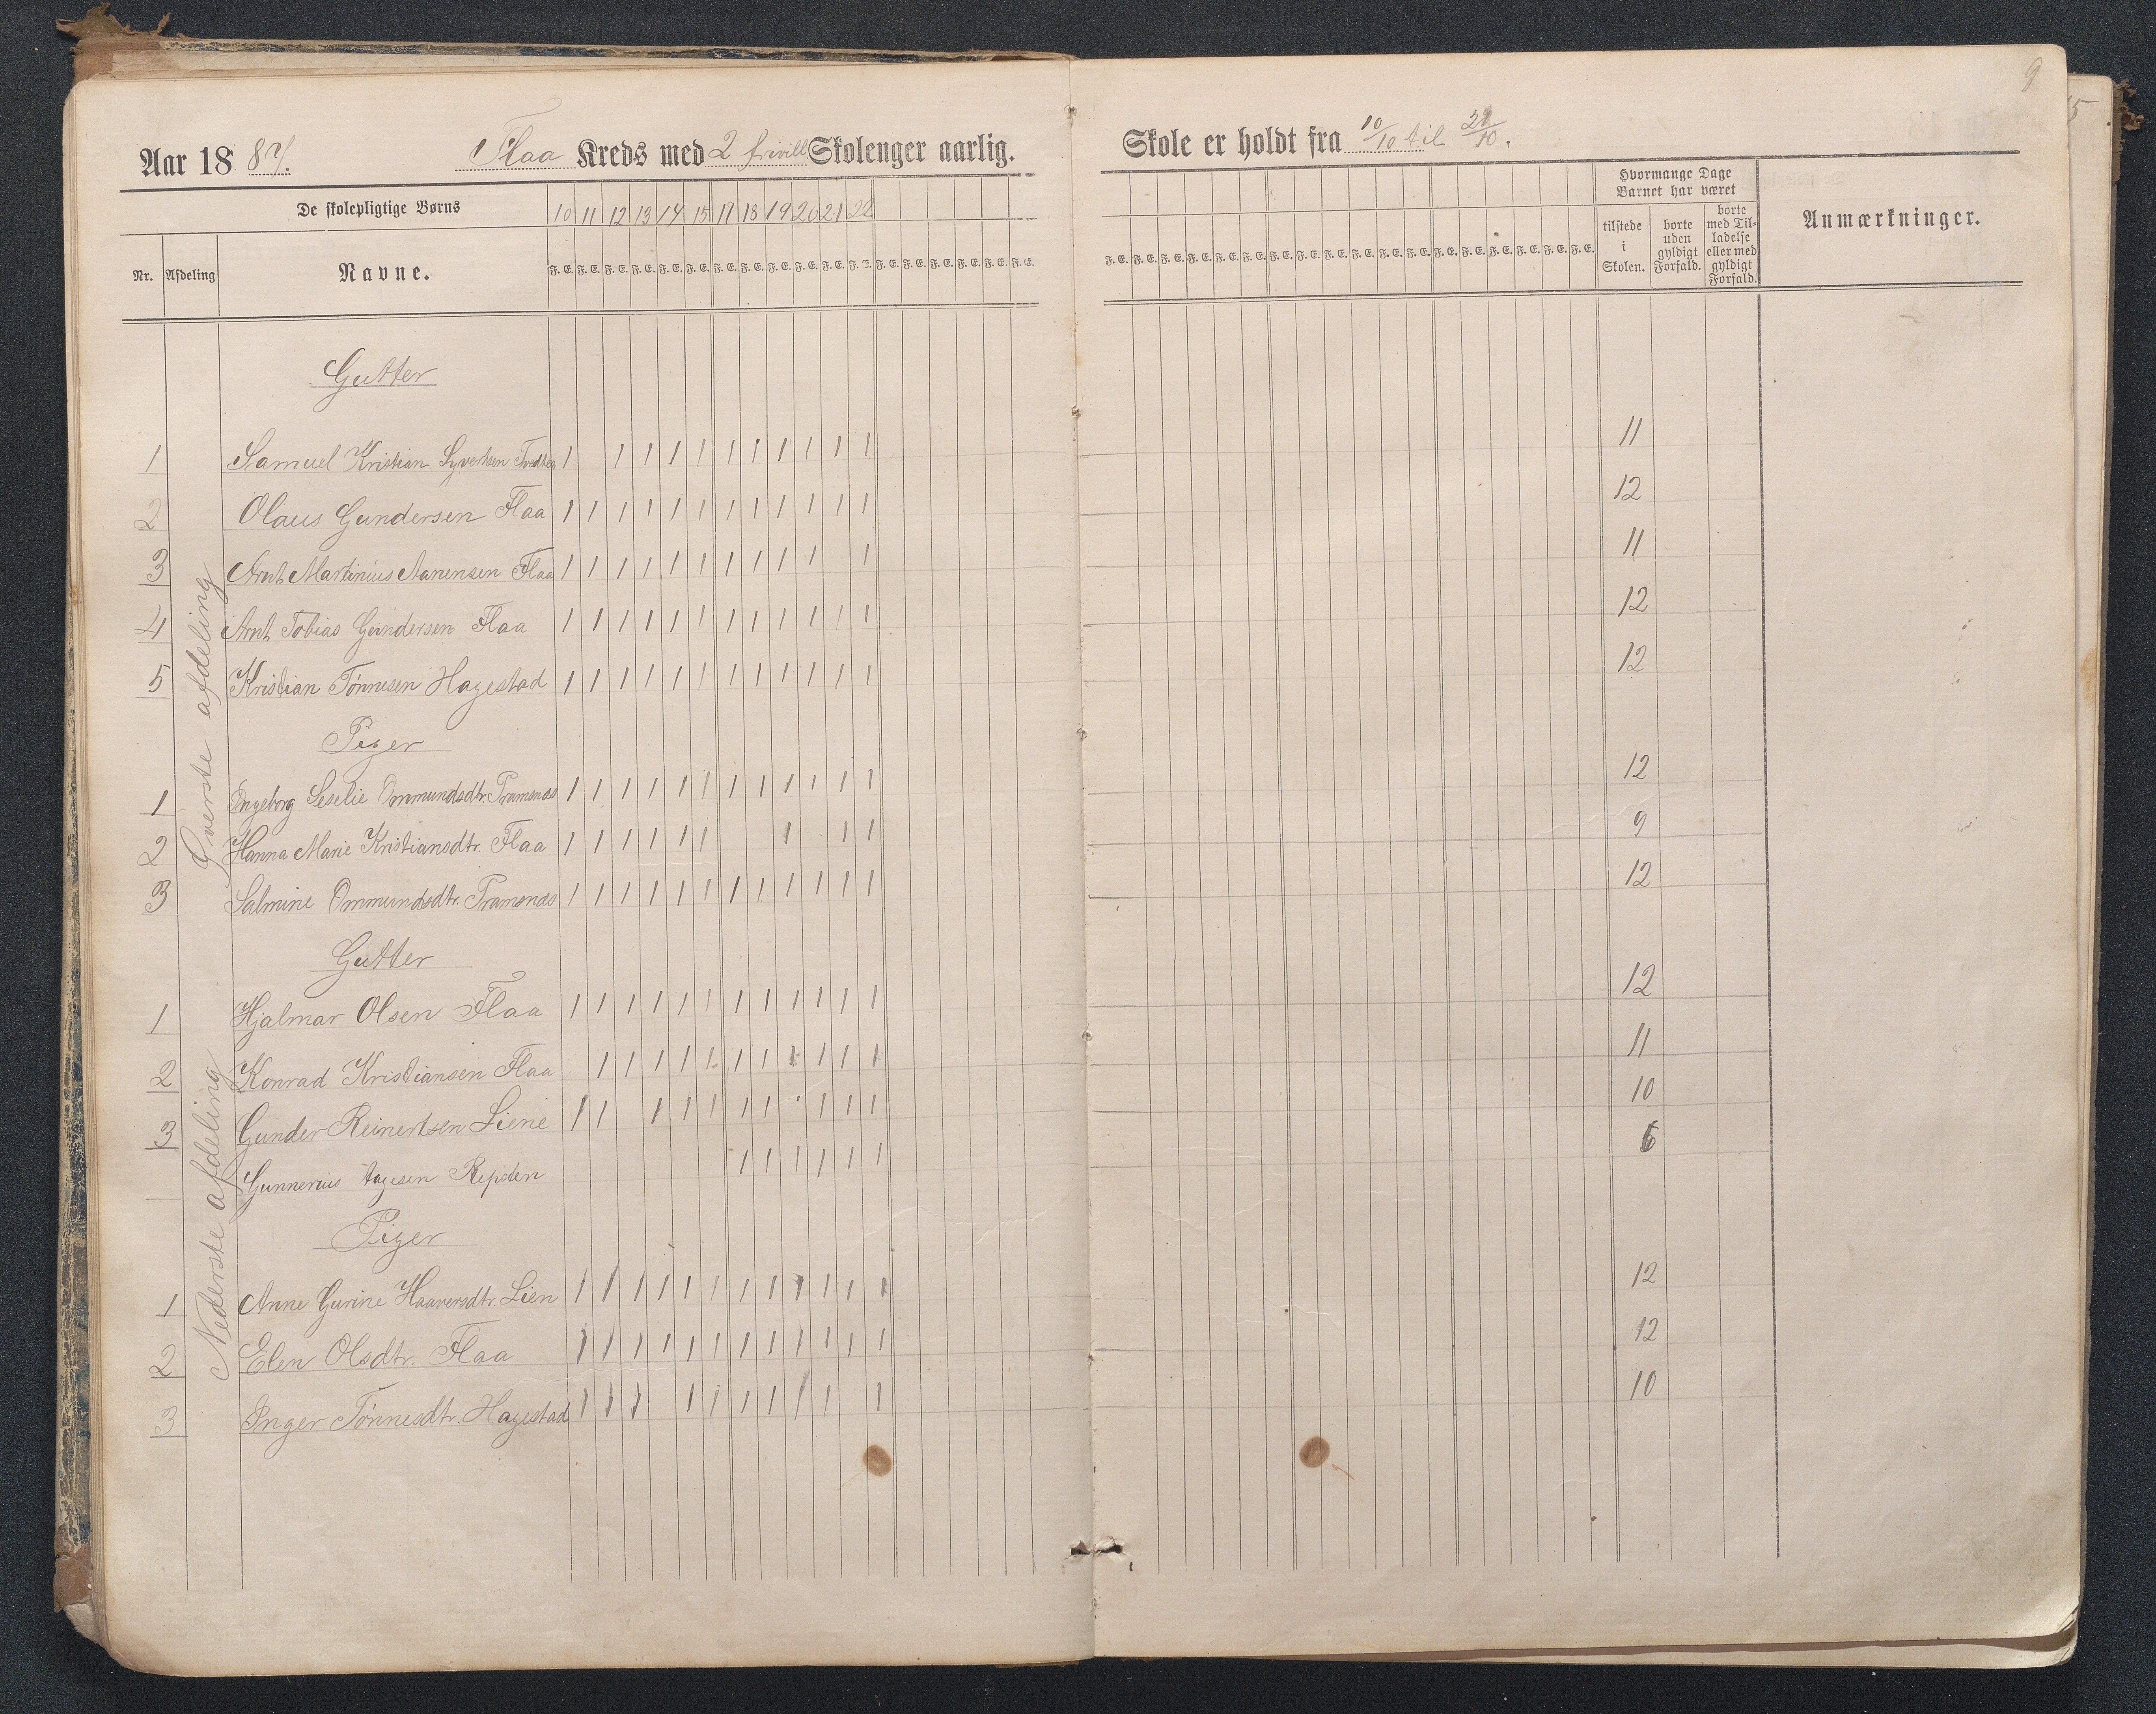 9
5
Aar 1887. Flaa Kreds med 2 frivill Skolenger aarlig. Skole er holdt fra 10/10 til 22/10.
De skolepligtige Børns 10 11 12 13 14 15 17 18 19 20 21 22
Hvormange Dage Barnet har været
Nr. Afdeling Navne. F. E. F. E. F. E. F. E. F. E. F. E. F. E. F. E. F. E. F. E. F. E. F. E. F. E. F. E. F. E. F. E. F. E. F. E.
F. E. F. E. F. E. F. E. F. E. F. E. F. E. F. E. F. E. F. E. F. E. F. E. F. E. F. E. F. E. F. E. F. E. F. E.
tilstede i Skolen. borte uden gyldigt Forfald. borte med Tilladelse eller med gyldigt Forfald. Anmærkninger.
Øverste afdeling
Gutter
1 Samuel Kristian Syvertsen 1 1 1 1 1 1 1 1 1 1 1 11
2 Olaus Gundersen Flaa 1 1 1 1 1 1 1 1 1 1 1 1 12
3 Arnt Martinius Aanensen Flaa 1 1 1 1 1 1 1 1 1 1 1 11
4 Arnt Tobias Gundersen Flaa 1 1 1 1 1 1 1 1 1 1 1 1 12
5 Kristian Tønnesen Hagestad 1 1 1 1 1 1 1 1 1 1 1 1 12
Piger
1 Ingeborg Seselie Ommundsdtr. Tramsnes 1 1 1 1 1 1 1 1 1 1 1 1 12
2 Hanna Marie Kristiansdtr. Flaa 1 1 1 1 1 1 1 1 1 9
3 Salmine Ommundsdtr. Tramsnes 1 1 1 1 1 1 1 1 1 1 1 1 12
Nederste afdeling
Gutter
1 Hjalmar Olsen Flaa 1 1 1 1 1 1 1 1 1 1 1 1 12
2 Konrad Kristiansen Flaa 1 1 1 1 1 1 1 1 1 1 1 11
3 Gunder Reinertsen Liene 1 1 1 1 1 1 1 1 1 1 10
Gunnerius Aagesen Repsden 1 1 1 1 1 1 6
Piger
1 Anne Gurine Haaversdtr. Lien 1 1 1 1 1 1 1 1 1 1 1 1 12
2 Elen Olsdtr. Flaa 1 1 1 1 1 1 1 1 1 1 1 1 12
3 Inger Tønnesdtr. Hagestad 1 1 1 1 1 1 1 1 1 1 10